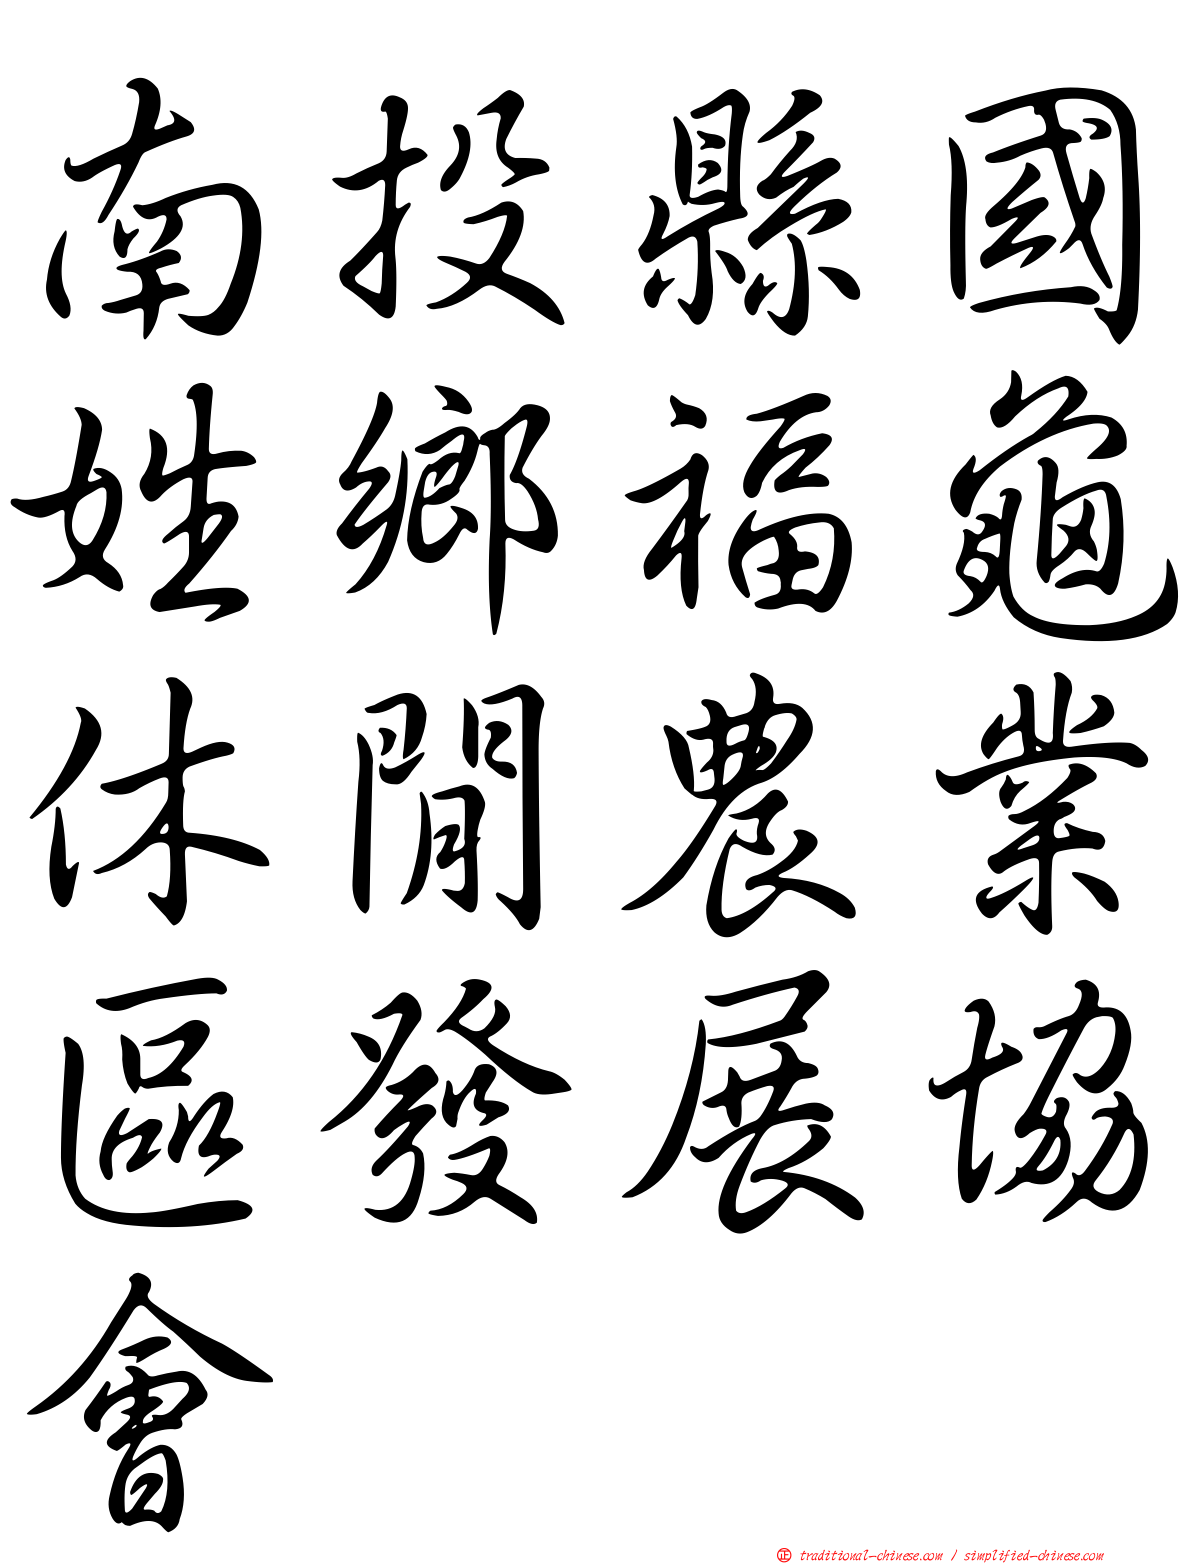 南投縣國
姓鄉福龜
休閒農業
區發展協
會
正 traditional-chinese.com / simplified-chinese.com